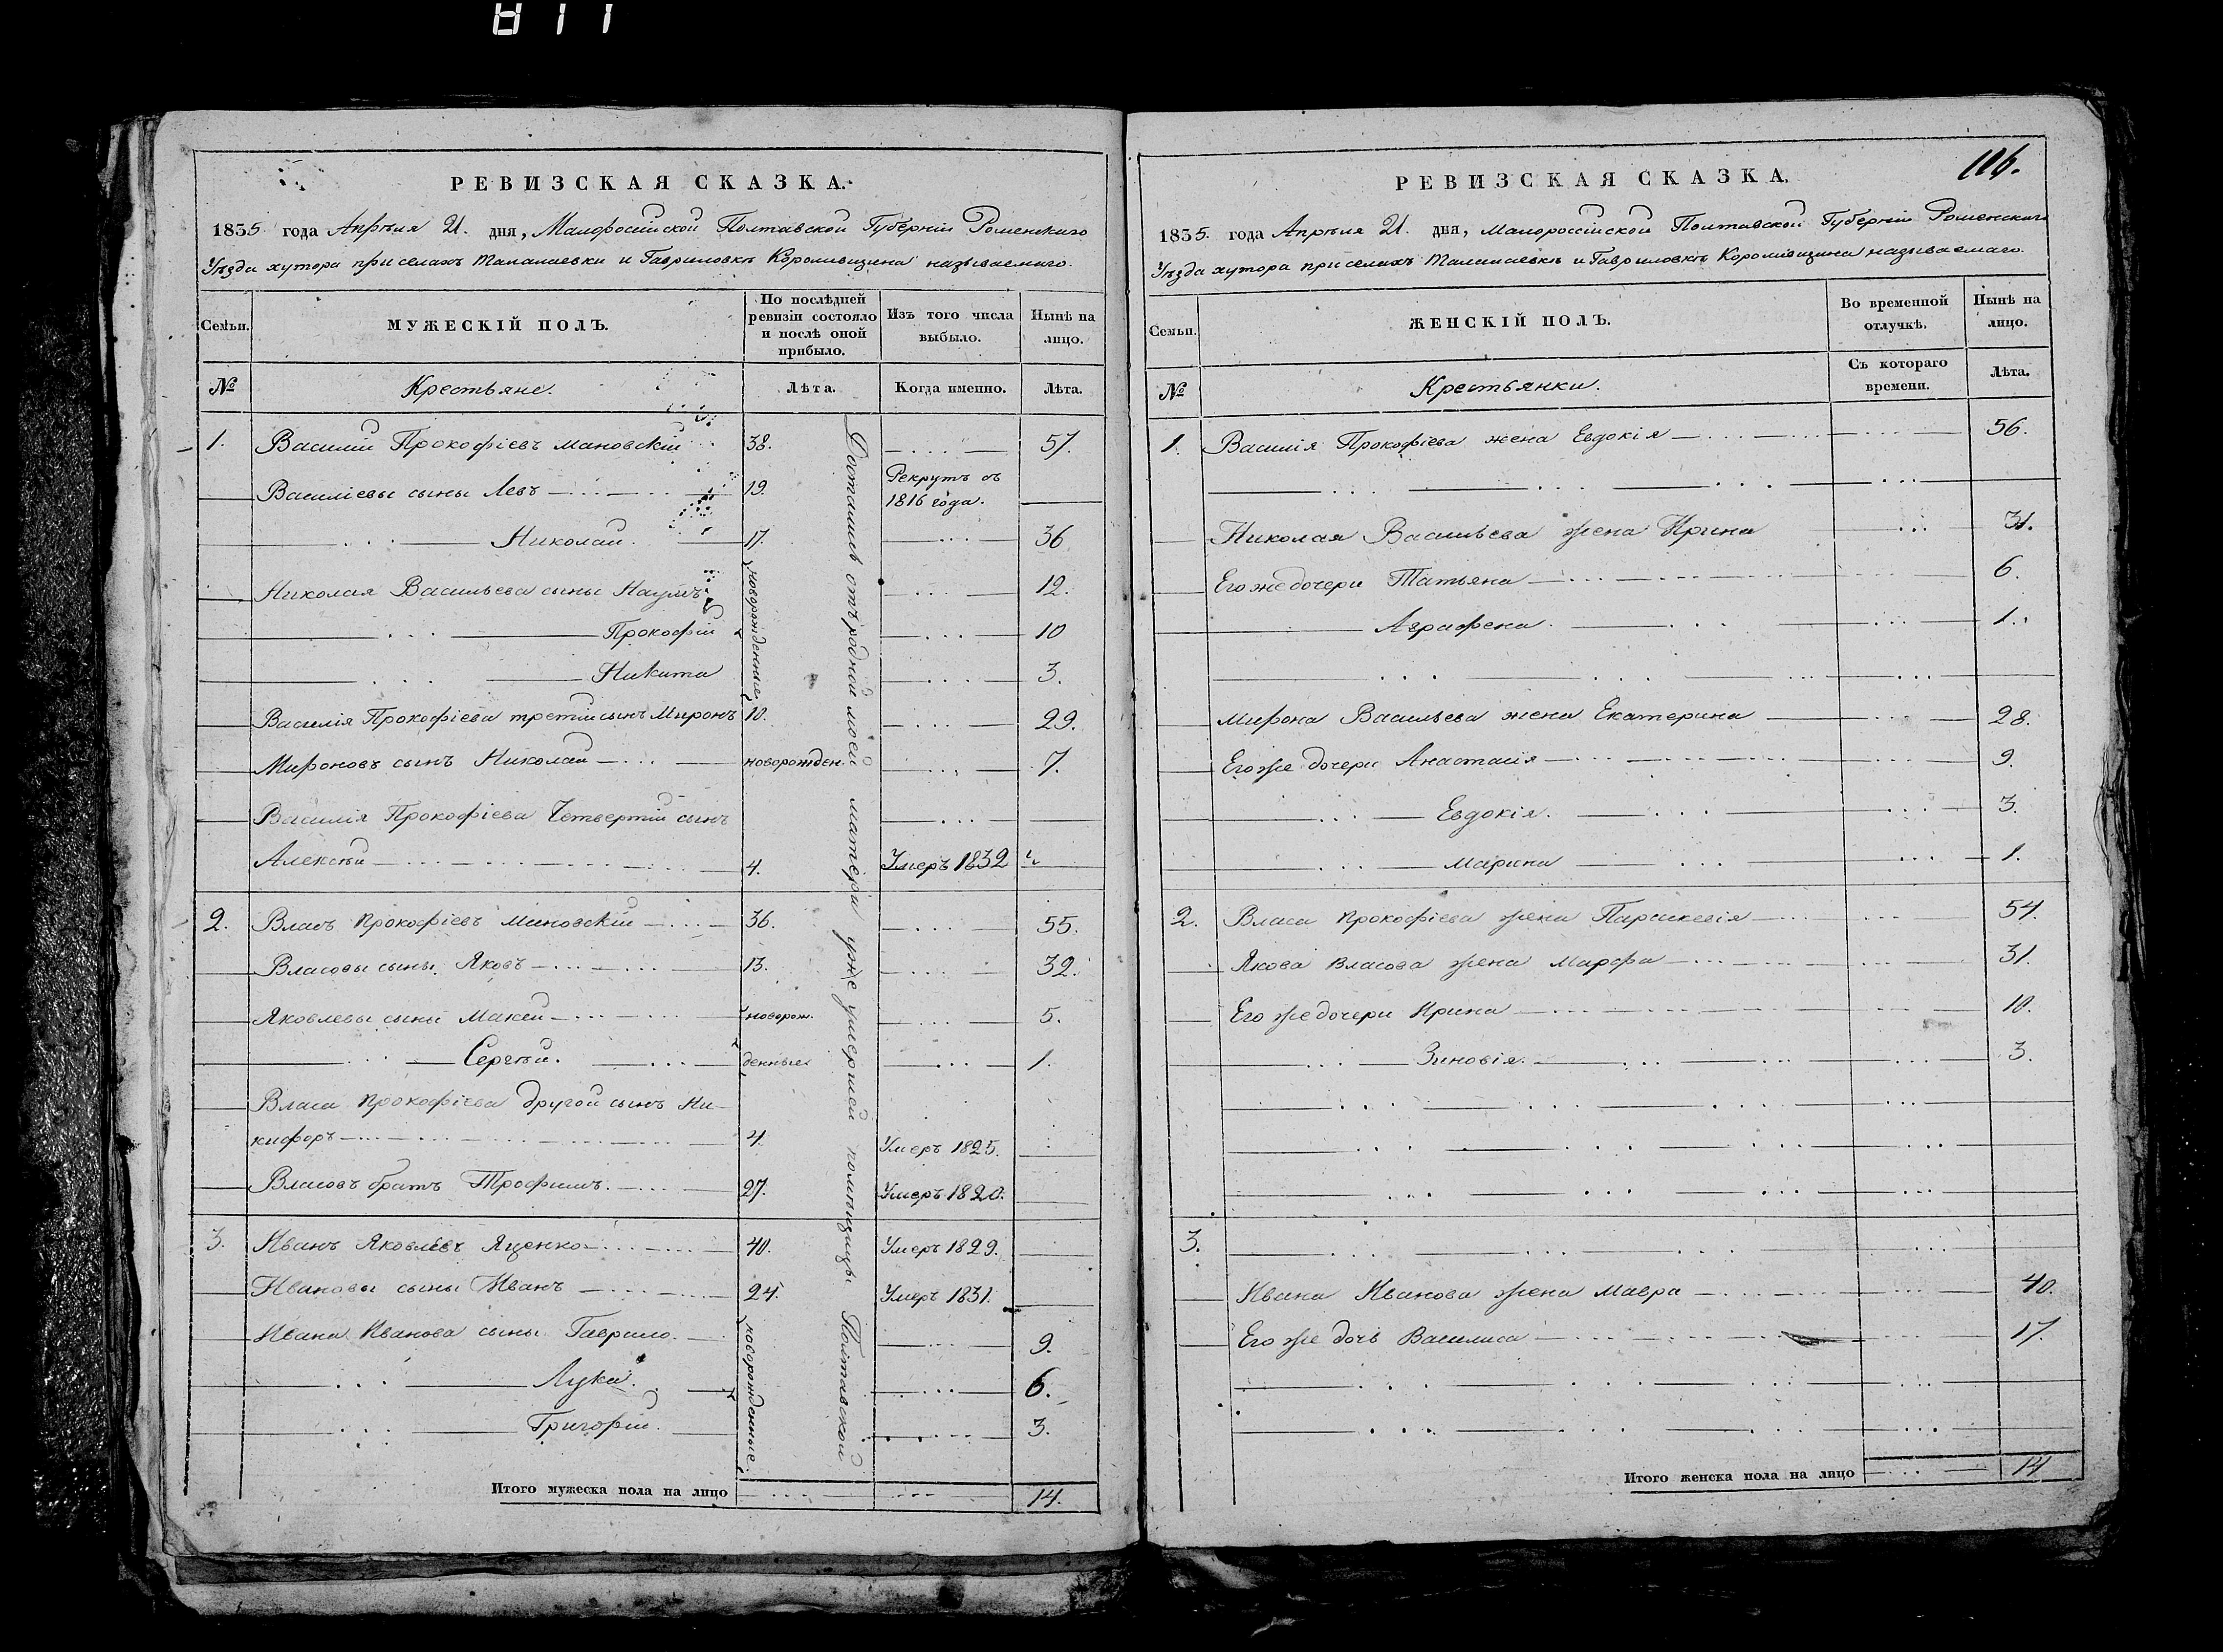 811
РЕВИЗСКАЯ СКАЗКА.
1835 года Апрѣля 21. дня, Малоросійской Полтавской Губерніи Роменскаго
Уѣзда хутора при селахъ Талалаевки и Гавриловкѣ Короливщина называемаго.
Семьи.
МУЖЕСКІЙ ПОЛЪ.
По послѣдней ревизіи состояло и послѣ оной прибыло.
Изъ того числа выбыло.
Нынѣ на лицо.
№ Крестьяне. Лѣта. Когда именно. Лѣта.
1. Василій Прокофіевъ Мановскій 38. 57.
Василіевы сыны Левъ 19. Рекрутъ съ 1816 года.
Николай. 17. 36
Николая Васильева сыны Наумъ новорожденные 12.
Прокофій 10
Никита 3.
Василія Прокофіева третій сынъ Миронъ 10. 29.
Мироновъ сынъ Николай новорожден. 7.
Василія Прокофіева Четвертій сынъ
Алексѣй 4. Умеръ 1832
2. Власъ Прокофіевъ Мановскій 36. 55.
Власовы сыны Яковъ 13. 32.
Яковлевы сыны Макей новорож- 5.
Сергѣй. денные 1.
Власа Прокофіева другой сынъ Ни-
кифоръ 4. Умеръ 1825.
Власовъ братъ Трофимъ. 27. Умеръ 1820.
3. Иванъ Яковлевъ Яценко 40. Умеръ 1829.
Ивановы сыны Иванъ 24. Умеръ 1831.
Ивана Иванова сыны Гаврило. новорожденные. 9.
Лука. 6.
Григорій. 3.
Итого мужеска пола на лицо 14.
Достались отъ родной моей матери уже умершей помѣщицы Полтавской
106.
РЕВИЗСКАЯ СКАЗКА.
1835. года Апрѣля 21. дня, Малоросійской Полтавской Губерніи Роменскаго
Уѣзда хутора при селахъ Талалаевкѣ и Гавриловкѣ Короливщина называемаго.
Семьи.
ЖЕНСКІЙ ПОЛЪ.
Во временной отлучкѣ.
Нынѣ на лицо.
№ Крестьянки. Съ котораго времени. Лѣта.
1. Василія Прокофіева жена Евдокія 56.
Николая Васильева жена Ирина 31.
Его же дочери Татьяна 6.
Аграфена. 1.
Мирона Васильева жена Екатерина 28.
Его же дочери Анастасія 9.
Евдокія. 3.
Марина 1.
2. Власа Прокофіева жена Параскевія 54.
Якова Власова жена Марфа 31.
Его же дочери Ирина 10.
Зиновія. 3.
3.
Ивана Иванова жена Мавра 40.
Его же дочь Василиса 17.
Итого женска пола на лицо 14